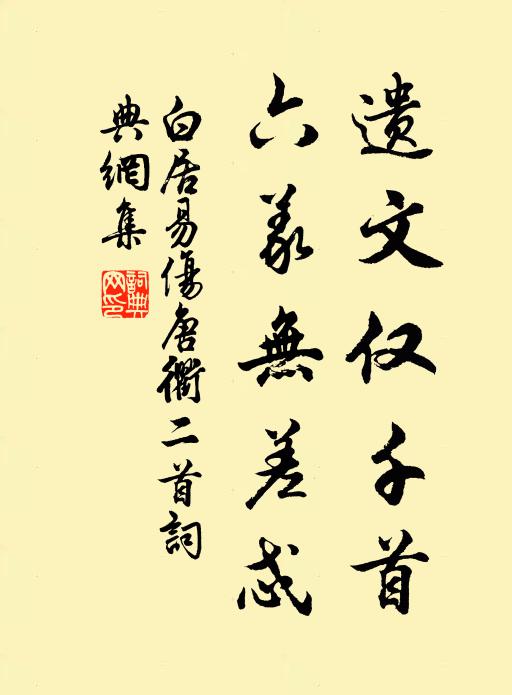 遺文仅千首
六義無差忒
白居易傷唐衢二首詞
典網集
詞典
网印